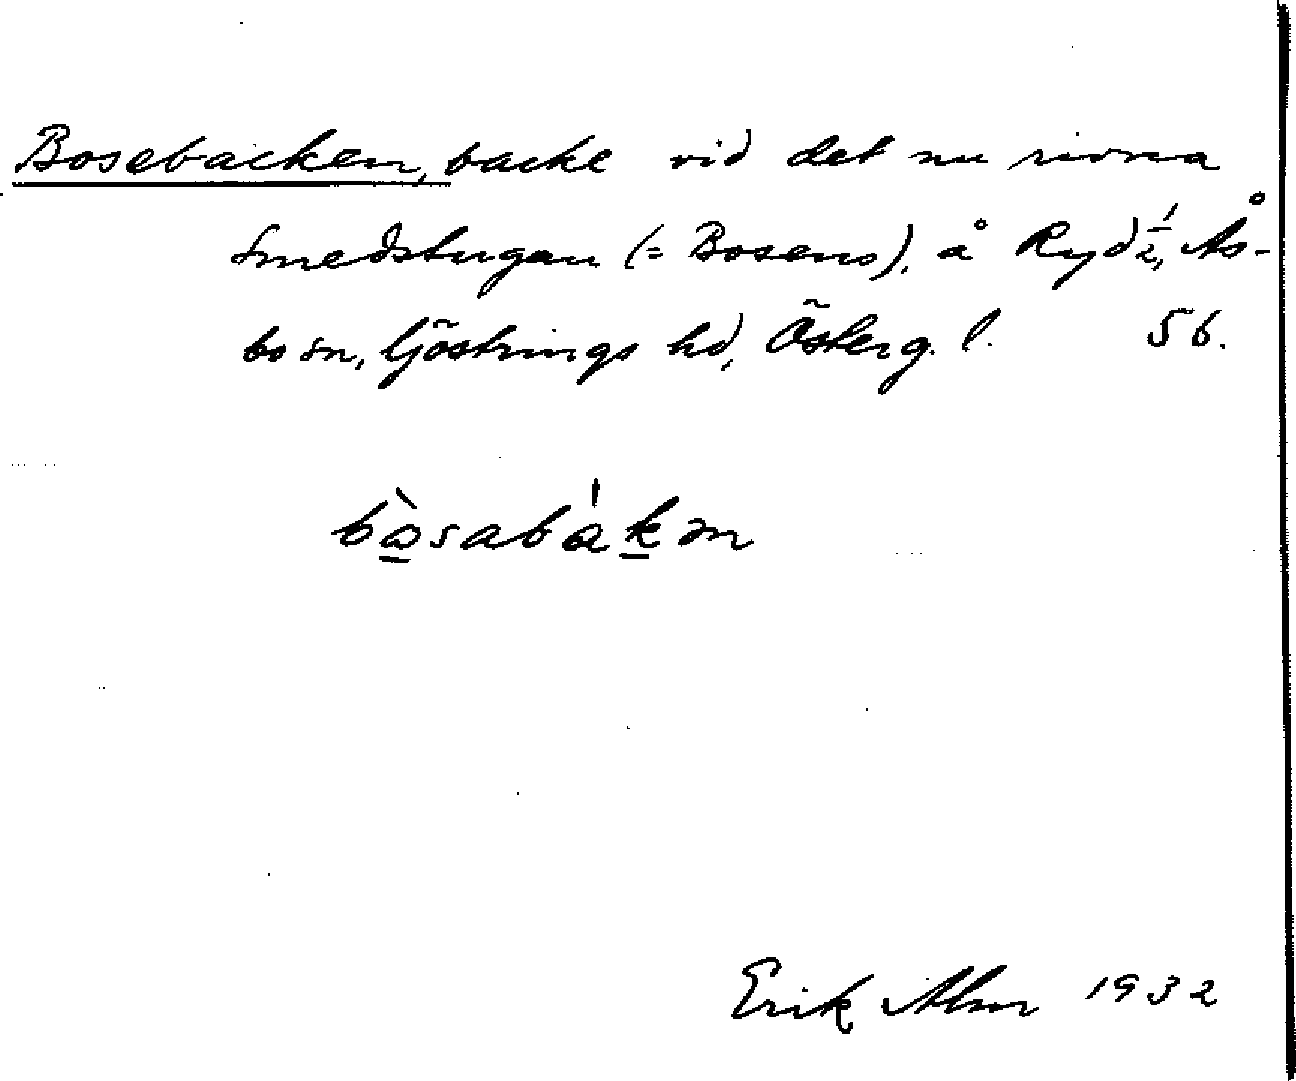 Bosebacken, backe vid det nu rivna
Smedstugan (= Bosens), å Ryd ½, Ås-
bo sn, Göstrings hd, Österg. l. 56.
bòsabákən
Erik Alm 1932